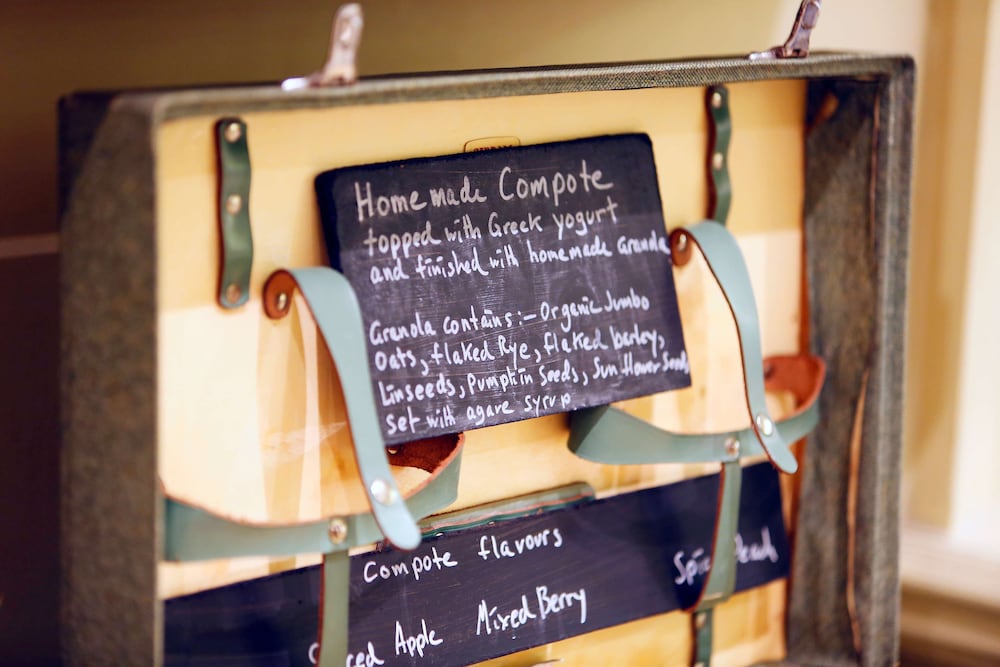 Homemade Compote
topped with Greek yogurt
and finished with homemade Granola
Granola contains:- Organic Jumbo
Oats, flaked Rye, flaked barley,
Linseeds, Pumpkin Seeds, Sunflower Seeds
Set with agave syrup
Compote flavours
Apple
Mixed Berry